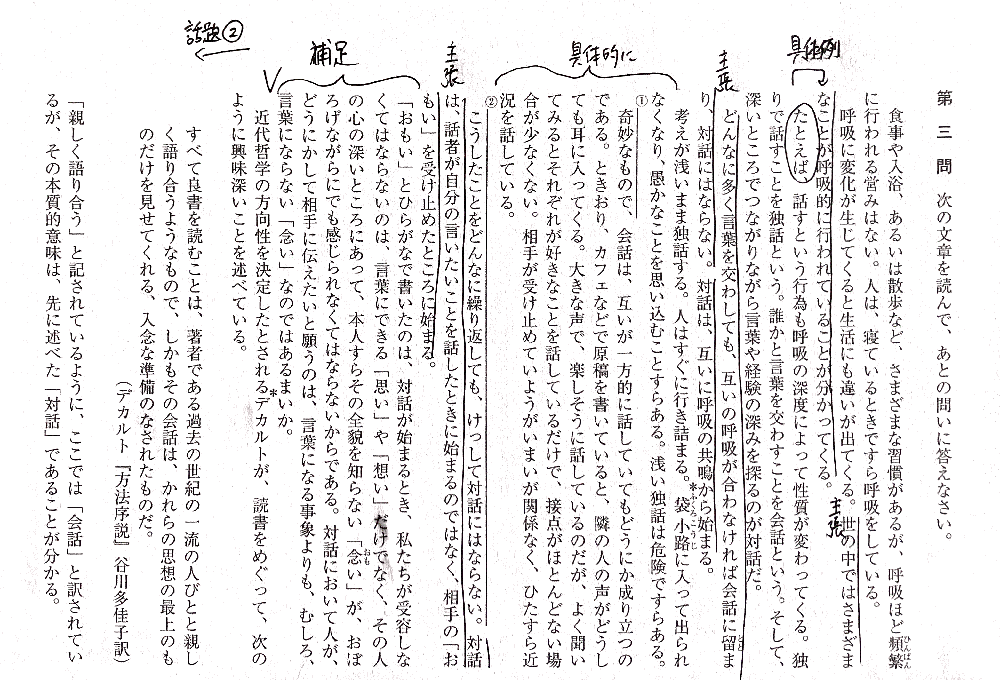 第三問　次の文章を読んで、あとの問いに答えなさい。
食事や入浴、あるいは散歩など、さまざまな習慣があるが、呼吸ほど頻繁
ひんぱん
に行われる営みはない。人は、寝ているときですら呼吸をしている。
呼吸に変化が生じてくると生活にも違いが出てくる。世の中ではさまざま
主張
なことが呼吸的に行われていることが分かってくる。
具体例
たとえば　話すという行為も呼吸の深度によって性質が変わってくる。独
りで話すことを独話という。誰かと言葉を交わすことを会話という。そして、
深いところでつながりながら言葉や経験の深みを探るのが対話だ。
主張
どんなに多く言葉を交わしても、互いの呼吸が合わなければ会話に留ま
とど
り、対話にはならない。対話は、互いに呼吸の共鳴から始まる。
考えが浅いまま独話する。人はすぐに行き詰まる。*袋小路に入って出られ
ふくろこうじ
なくなり、愚かなことを思い込むことすらある。浅い独話は危険ですらある。
具体的に
①奇妙なもので、会話は、互いが一方的に話していてもどうにか成り立つの
である。ときおり、カフェなどで原稿を書いていると、隣の人の声がどうし
ても耳に入ってくる。大きな声で、楽しそうに話しているのだが、よく聞い
てみるとそれぞれが好きなことを話しているだけで、接点がほとんどない場
合が少なくない。相手が受け止めていようがいまいが関係なく、ひたすら近
況を話している。
主張
②こうしたことをどんなに繰り返しても、けっして対話にはならない。対話
は、話者が自分の言いたいことを話したときに始まるのではなく、相手の「お
もい」を受け止めたところに始まる。
補足
「おもい」とひらがなで書いたのは、対話が始まるとき、私たちが受容しな
くてはならないのは、言葉にできる「思い」や「想い」だけでなく、その人
の心の深いところにあって、本人すらその全貌を知らない「念い」が、おぼ
おも
ろげながらにでも感じられなくてはならないからである。対話において人が、
どうにかして相手に伝えたいと願うのは、言葉になる事象よりも、むしろ、
言葉にならない「念い」なのではあるまいか。
話題②
近代哲学の方向性を決定したとされる*デカルトが、読書をめぐって、次の
ように興味深いことを述べている。
すべて良書を読むことは、著者である過去の世紀の一流の人びとと親し
く語り合うようなもので、しかもその会話は、かれらの思想の最上のも
のだけを見せてくれる、入念な準備のなされたものだ。
（デカルト『方法序説』谷川多佳子訳）
「親しく語り合う」と記されているように、ここでは「会話」と訳されてい
るが、その本質的意味は、先に述べた「対話」であることが分かる。